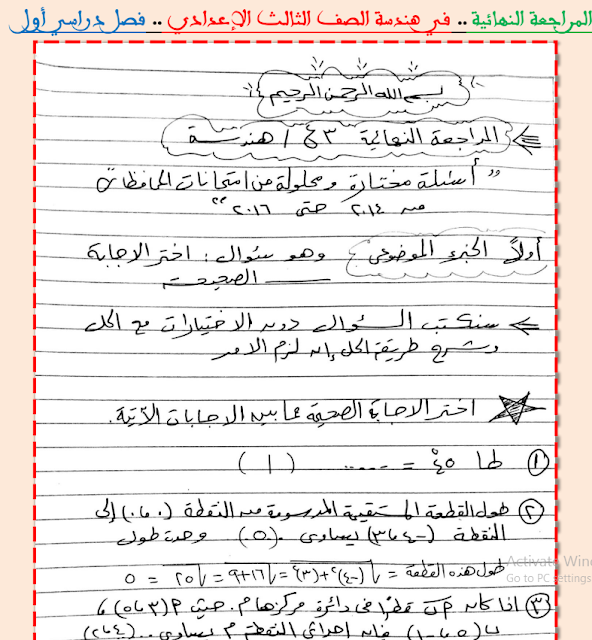 المراجعة النهائية .. في هندسة الصف الثالث الإعدادي .. فصل دراسي أول
بسم الله الرحمن الرحيم
المراجعة النهائية ٣ع / هندسة
"أسئلة مختارة ومحلولة من امتحانات المحافظات
من ٢٠١٤ حتى ٢٠١٦"
أولاً الجزء الموضوعي وهو سؤال : اختر الاجابة
الصحيحة
سنكتب السؤال دون الاختيارات مع الحل
وشرح طريقة الحل إن لزم الأمر
اختر الاجابة الصحيحة مما بين الاجابات الآتية.
١ طا ٤٥° = ...... ( ١ )
٢ طول القطعة المستقيمة المرسومة من النقطة (٠،٠) إلى
النقطة (-٤،٣) يساوى .(٥). وحدة طول
طول هذه القطعة = √(-٤)²+(٣)² = √١٦+٩ = √٢٥ = ٥
٣ اذا كان P ب قطرًا في دائرة مركزها م. حيث P (٣،٥) ،
Activate Win
Go to PC settings